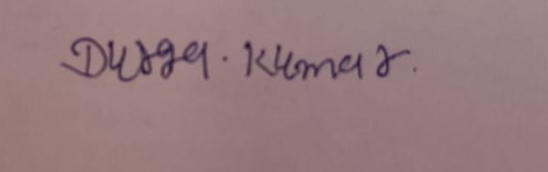 Durga. Kumar.